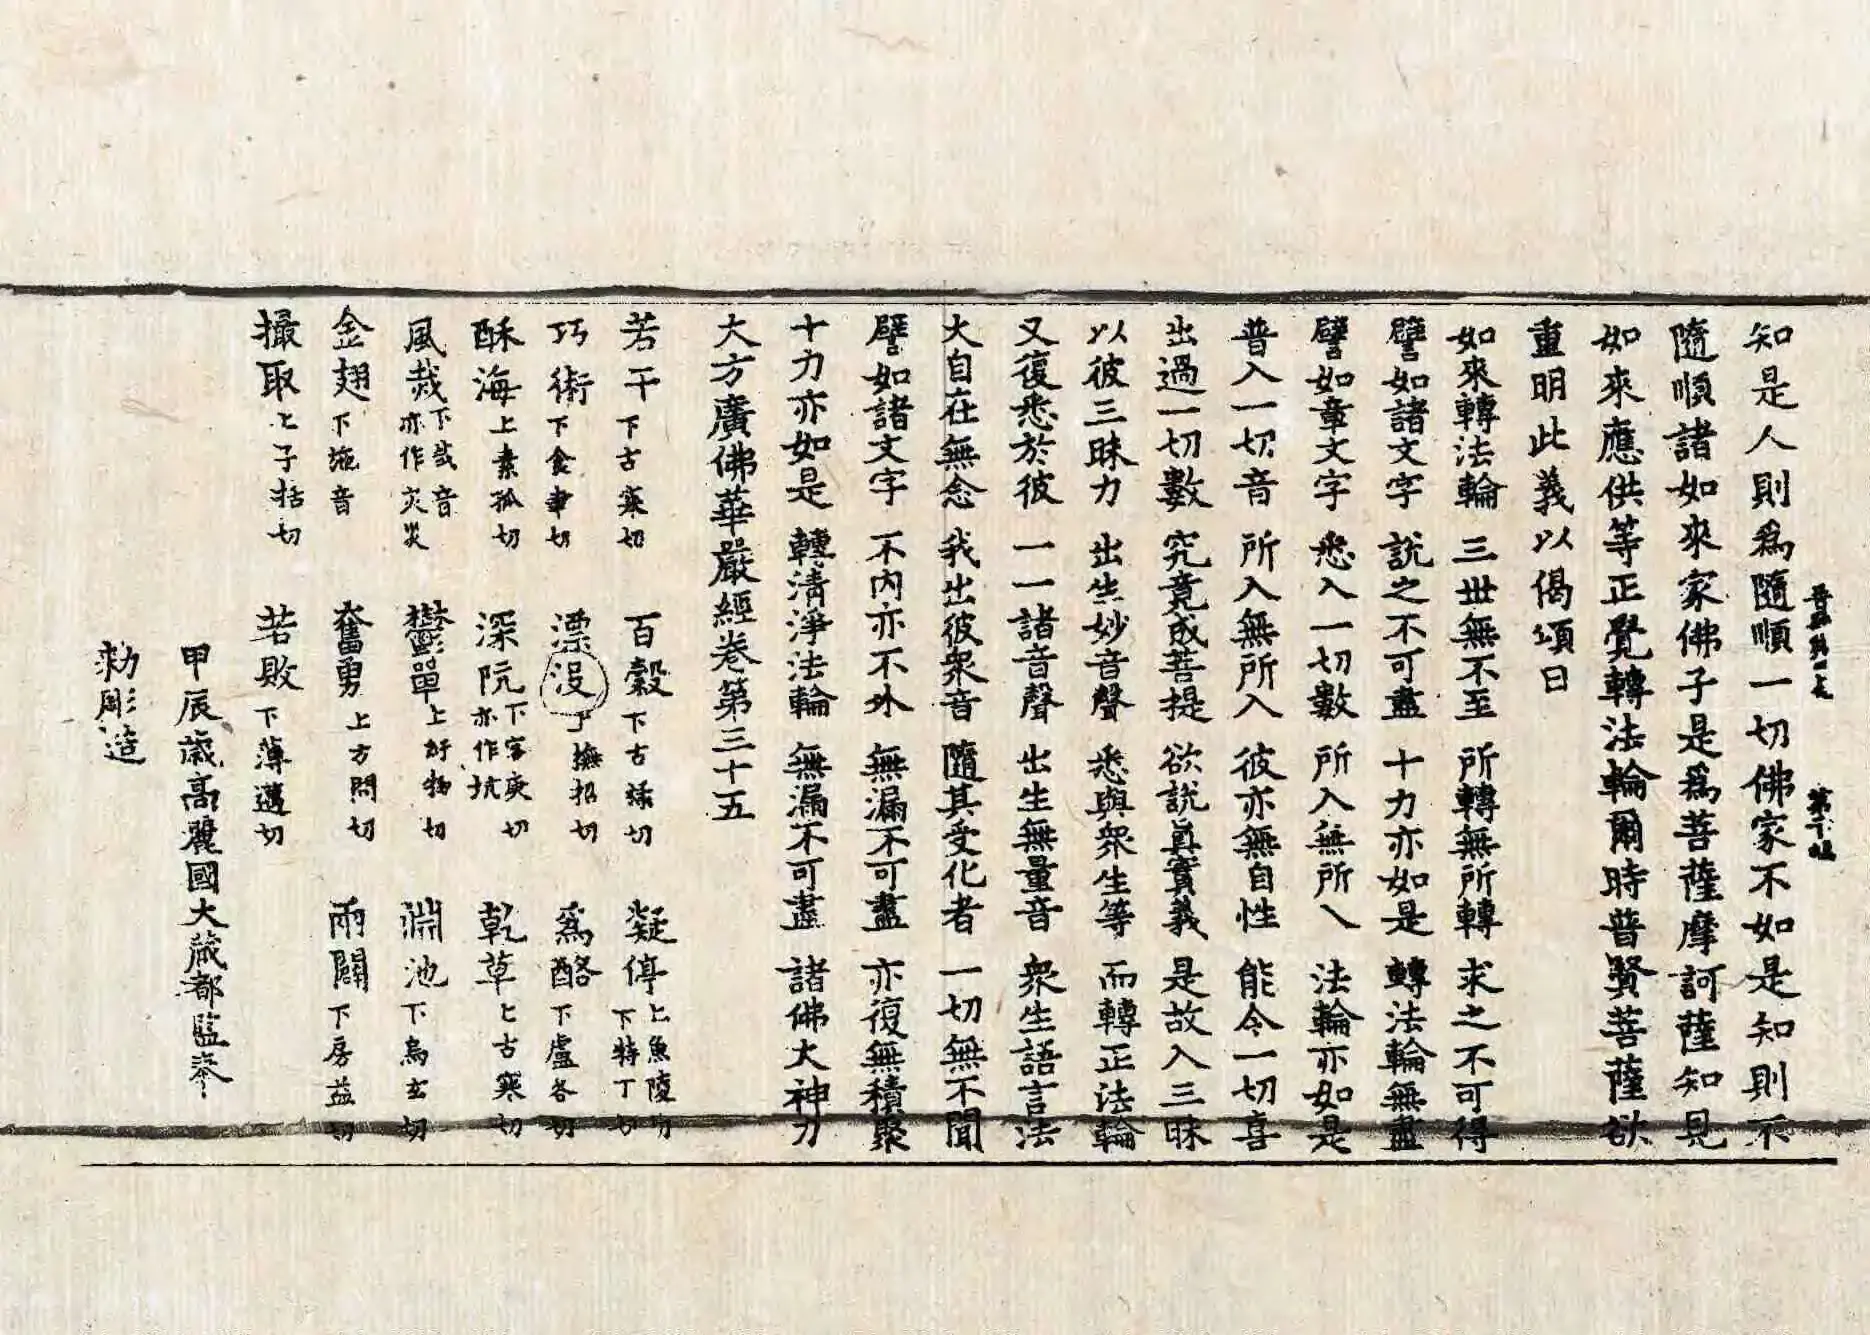 知是人則爲隨順一切佛家不如是知則不
隨順諸如來家佛子是爲菩薩摩訶薩知見
如來應供等正覺轉法輪爾時普賢菩薩欲
重明此義以偈頌曰
如來轉法輪 三世無不至 所轉無所轉 求之不可得
譬如諸文字 說之不可盡 十力亦如是 轉法輪無盡
譬如章文字 悉入一切數 所入無所入 法輪亦如是
普入一切音 所入無所入 彼亦無自性 能令一切喜
出過一切數 究竟成菩提 欲說眞實義 是故入三昧
以彼三昧力 出生妙音聲 悉與衆生等 而轉正法輪
又復悉於彼 一一諸音聲 出生無量音 衆生語言法
大自在無念 我出彼衆音 隨其受化者 一切無不聞
譬如諸文字 不內亦不外 無漏不可盡 亦復無積聚
十力亦如是 轉淸淨法輪 無漏不可盡 諸佛大神力
大方廣佛華嚴經卷第三十五
若干 下古寒切 百穀 下古祿切 凝停 上魚陵切 下特丁切
巧術 下食聿切 漂沒 撫招切 爲酪 下盧各切
酥海 上素孤切 深阬 下客庚切 亦作坑 乾草 上古寒切
風烖 下哉音 亦作灾災 鬱單 上紆物切 淵池 下烏玄切
金翅 下施音 奮勇 上方問切 兩闢 下房益切
撮取 上子括切 若敗 下薄邁切
甲辰歲高麗國大藏都監奉
勅彫造